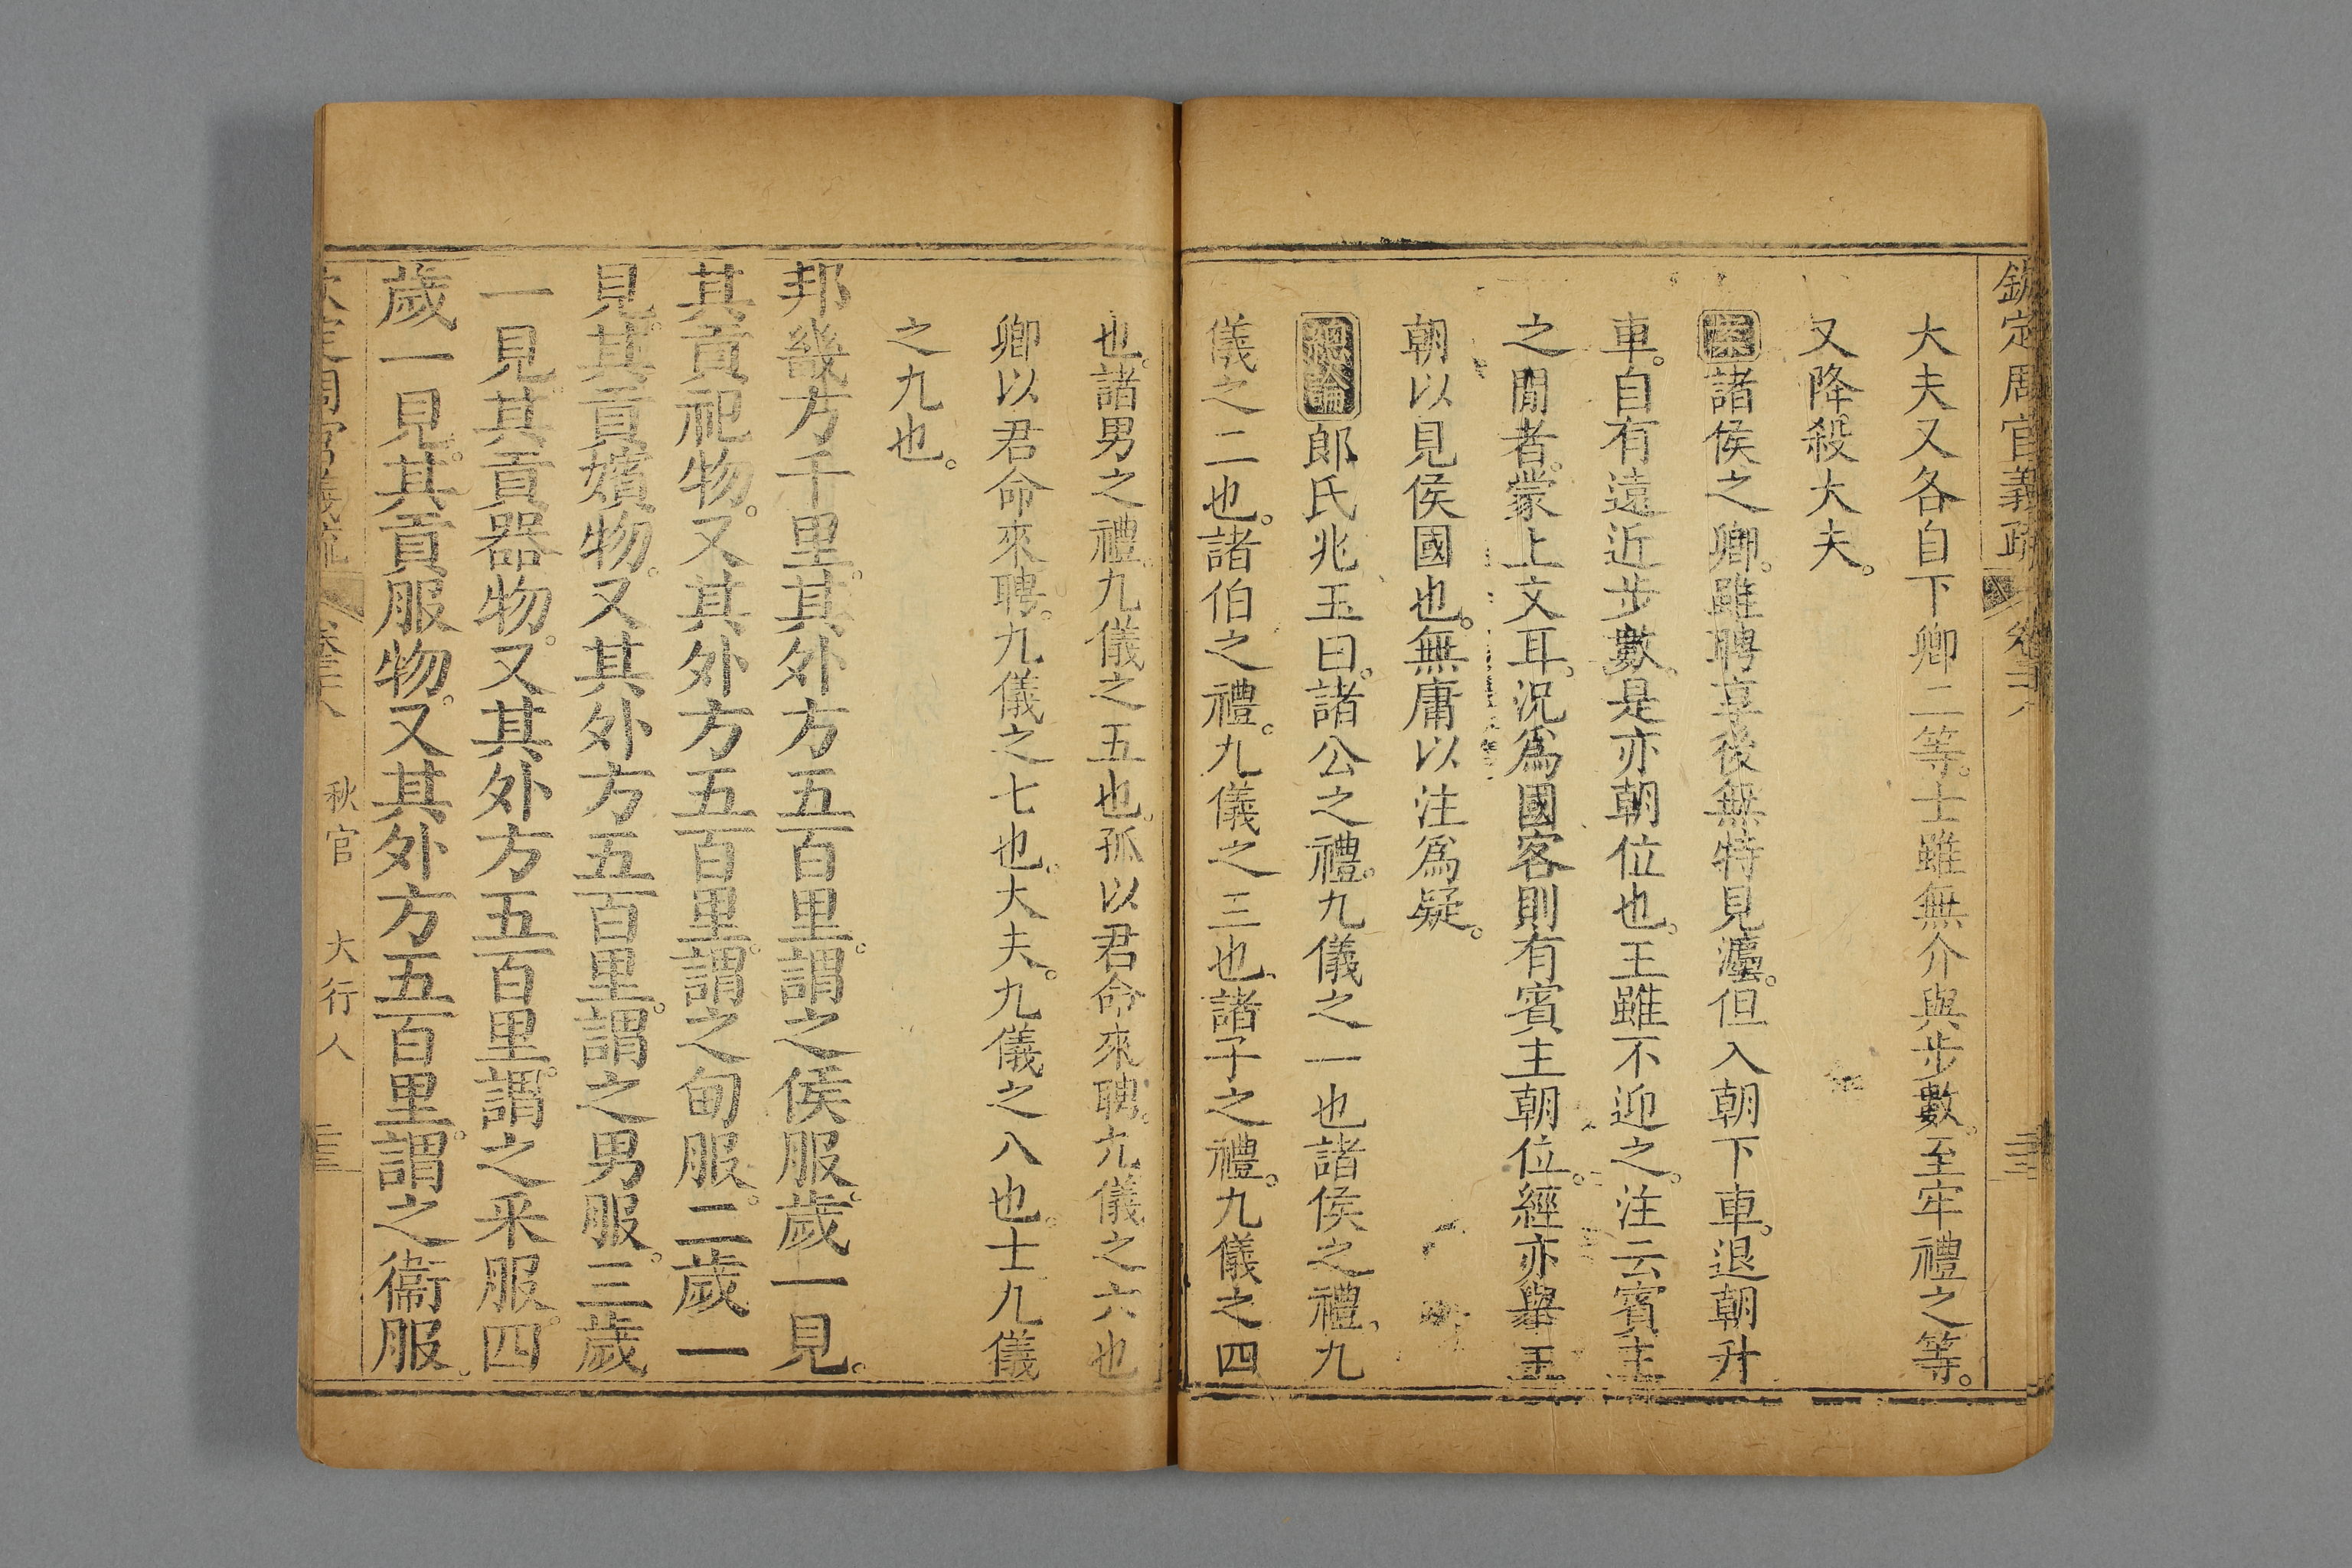 欽定周官義疏 卷三十八
大夫又各自下卿二等。士雖無介與步數。至牢禮之等。
又降殺大夫。
案諸侯之卿。雖聘享後無特見灋。但入朝下車。退朝升
車。自有遠近步數。是亦朝位也。王雖不迎之。注云賓主
之閒者。蒙上文耳。況爲國客則有賓主朝位。經亦舉王
朝以見侯國也。無庸以注爲疑。
總論郎氏兆玉曰。諸公之禮。九儀之一也諸侯之禮。九
儀之二也。諸伯之禮。九儀之三也。諸子之禮。九儀之四
也。諸男之禮。九儀之五也。孤以君命來聘。九儀之六也
卿以君命來聘。九儀之七也。大夫。九儀之八也。士九儀
之九也。
邦畿方千里。其外方五百里。謂之侯服。歲一見。
其貢祀物。又其外方五百里。謂之甸服。二歲一
見。其貢嬪物。又其外方五百里。謂之男服。三歲
一見。其貢器物。又其外方五百里。謂之采服。四
歲一見。其貢服物。又其外方五百里。謂之衞服。
欽定周官義疏 卷三十八 秋官 大行人